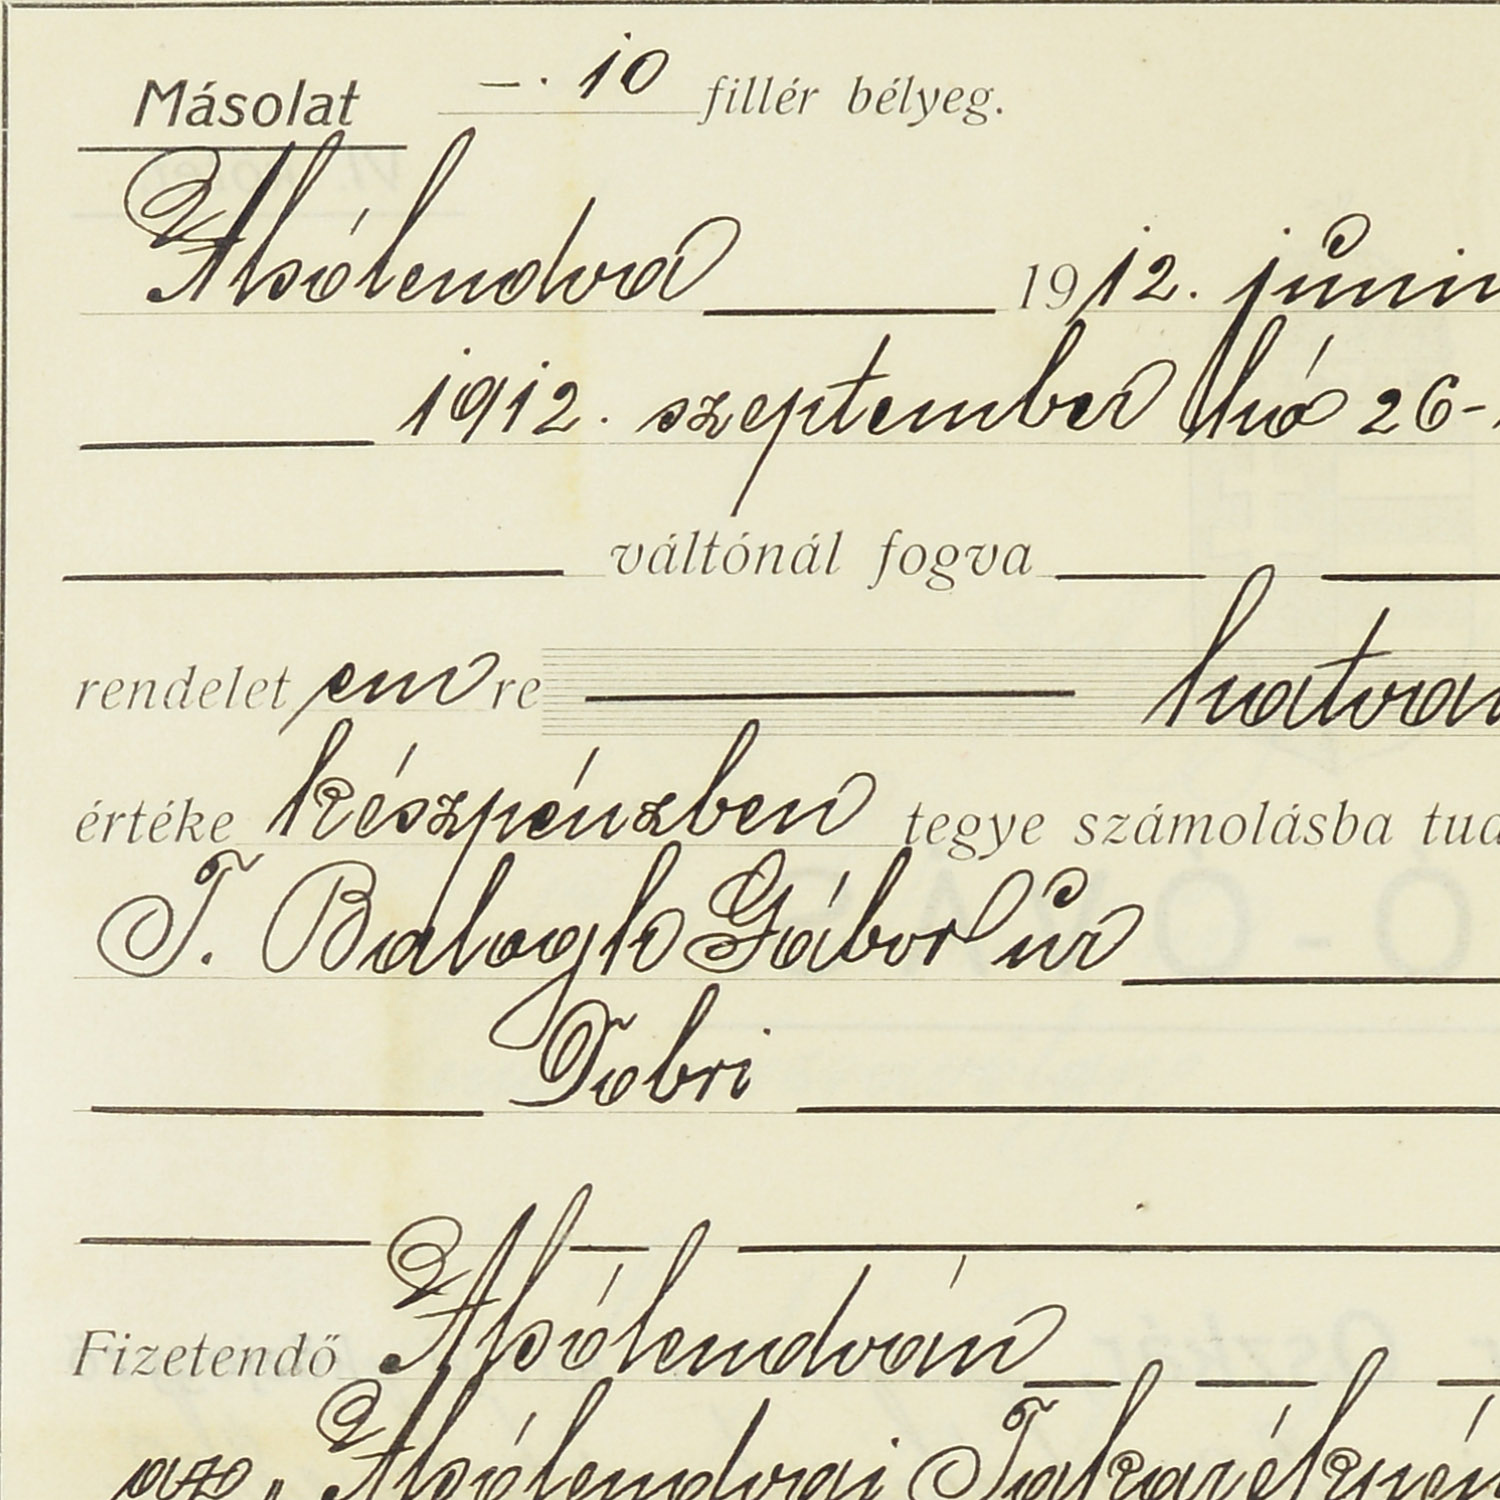 Másolat —. 10 fillér bélyeg.
Alsólendva 1912. júni
1912. szeptember hó 26-
váltónál fogva
rendelet em re hatvan
értéke készpénzben tegye számolásba tud
T. Balogh Gábor úr
Dobri
Fizetendő Alsólendván
az „Alsólendvai Takarékpén